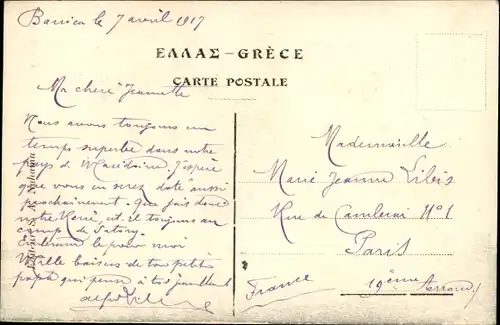 Banica le 7 avril 1917
ΕΛΛΑΣ-GRÈCE
CARTE POSTALE
Ma chère Jeannette
Nous avons toujours un
temps superbe dans notre
pays de Macédoine. J'espère
que vous en serez doté aussi
prochainement. Que fais donc
notre René, est il toujours au
camp de
Embrasse le pour moi
Mille baisers de ton petit
papa qui pense à toi
Mademoiselle
Marie Jeanne Libis
Rue de Cambrai N° 1
Paris
19ème Arrond.
France